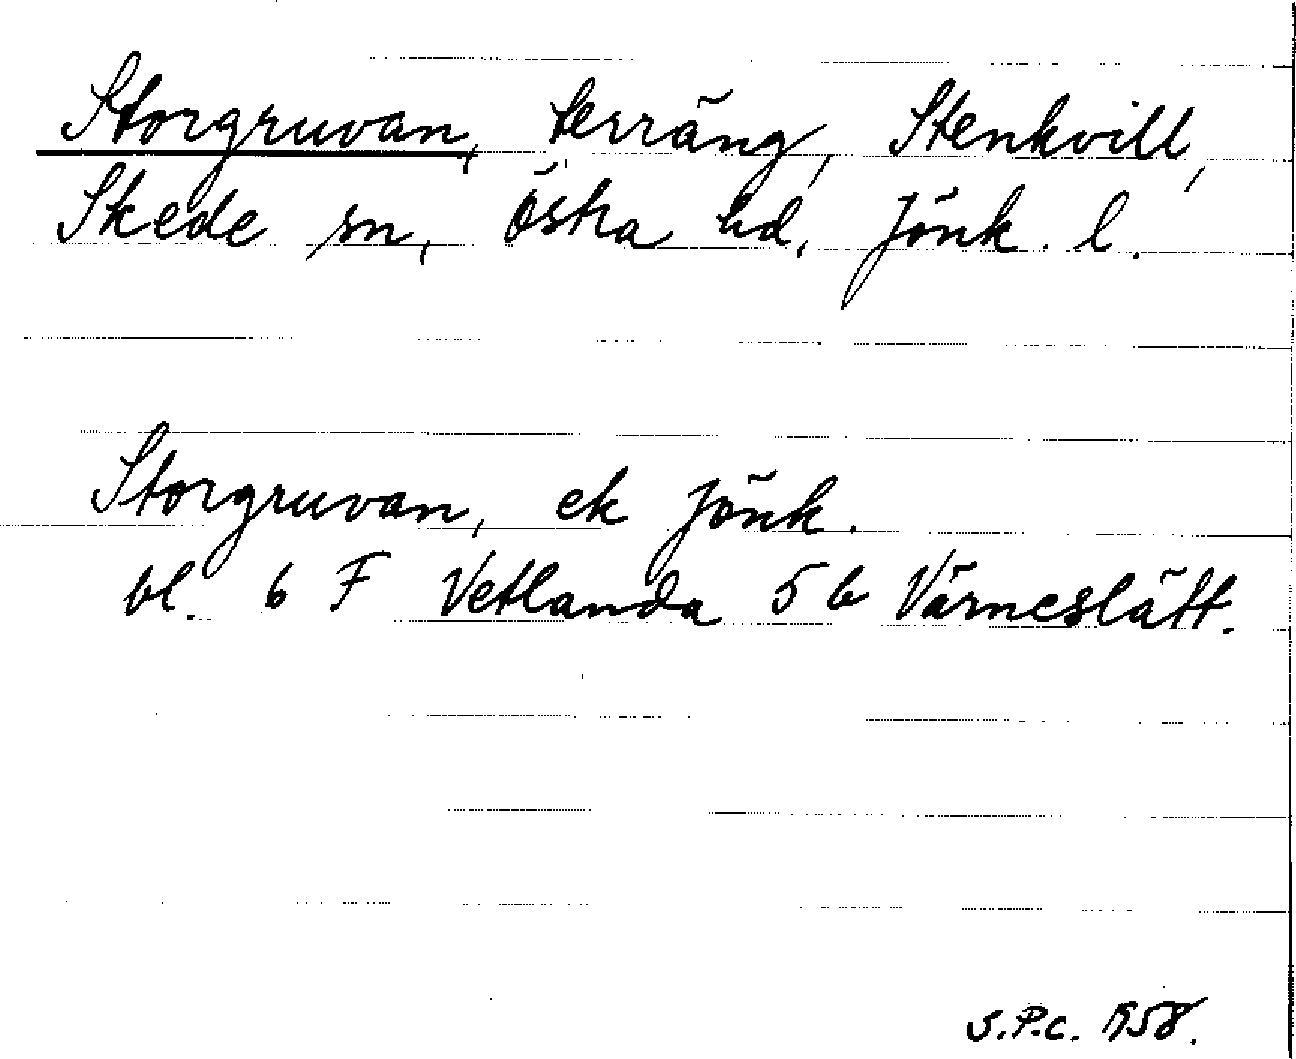 Storgruvan, terräng, Stenkvill,
Skede sn, Östra hd, Jönk. l.
Storgruvan, ek Jönk.
bl. 6 F Vetlanda 5 b Värneslätt.
S.P.C. 1958.